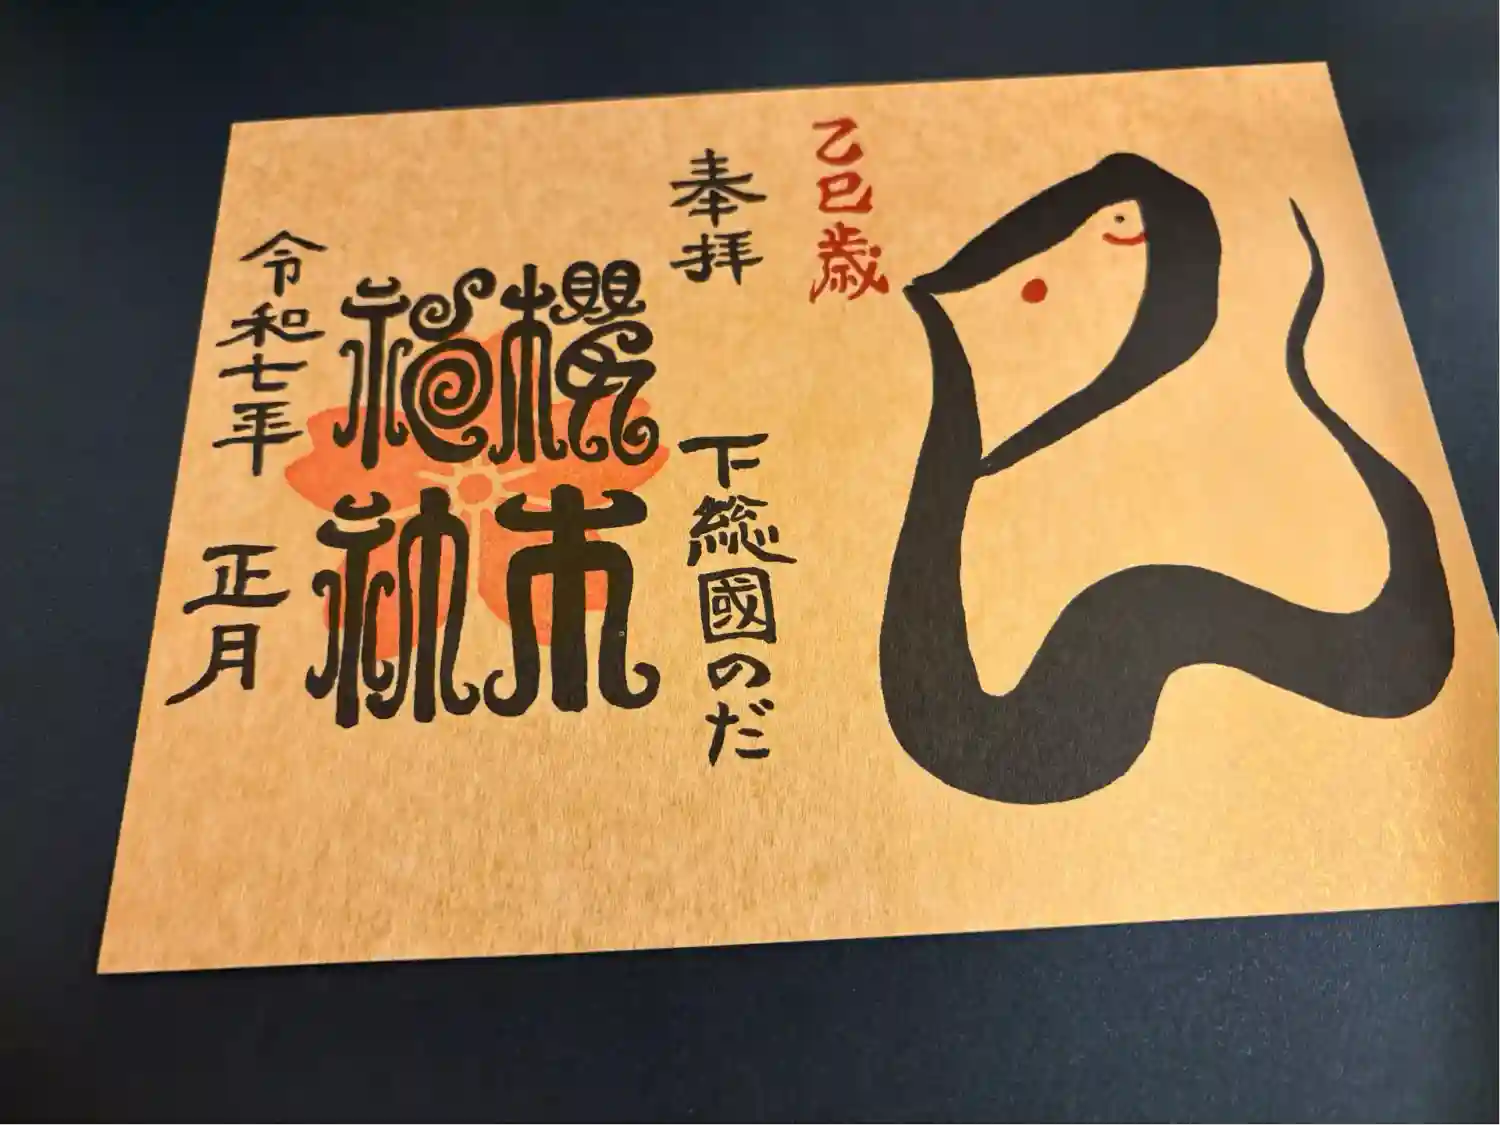 巳
乙巳歳
奉拝 下総國のだ
櫻木
神社
令和七年 正月